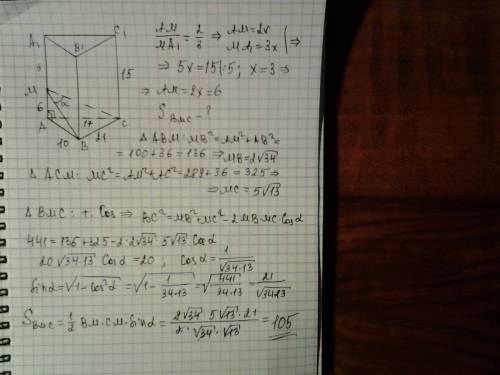 A₁ C₁
B₁
9
15
M
α
6
17
A C
10 21
B
AM/MA₁ = 2/3 ⇒ AM=2x
MA₁=3x | ⇒
⇒ 5x=15|:5; x=3 ⇒
⇒ AM=2x=6
S BMC - ?
Δ ABM: MB²=AM²+AB²=
=100+36=136 ⇒ MB=2√34
Δ ACM: MC²=AM²+AC²=289+36=325 ⇒
⇒ MC = 5√13
Δ BMC: т. Cos ⇒ BC²=MB²+MC²-2MB·MC·Cosα
441=136+325-2·2√34·5√13 Cosα
20√34·13 Cosα=20; Cosα=1/√34·13
Sinα=√1-Cos²α=√1-1/34·13=√441/34·13=21/√34·13
S BMC=1/2 BM·CM·Sinα=2√34·5√13·21/2·√34·√13=105